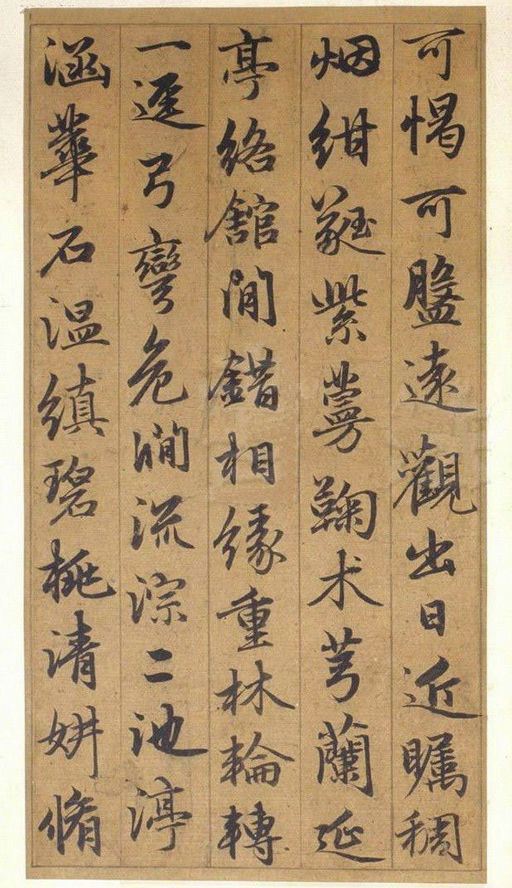 可憩可盤遠觀出日近矚稠
烟紺蕤紫萼鞠术芎蘭延
亭絡館間錯相緣重林輪轉
一逕弓彎危澗流淙二池渟
涵華石温縝碧桃清妍脩